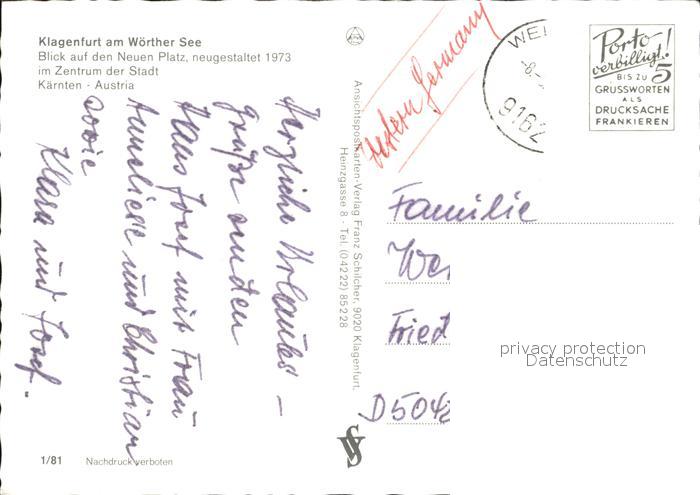 Klagenfurt am Wörther See
Blick auf den Neuen Platz, neugestaltet 1973
im Zentrum der Stadt
Kärnten · Austria
Herzliche Urlaubs-
grüße senden
Hans Josef mit Frau
Anneliese und Christian
sowie
Klara und Josef.
1/81 Nachdruck verboten
Ansichtspostkarten-Verlag Franz Schilcher, 9020 Klagenfurt.
Heinzgasse 8 - Tel. (04222) 85228
Western Germany
WEI
-8.-
9162
Porto
verbilligt!
BIS ZU 5
GRUSSWORTEN
ALS
DRUCKSACHE
FRANKIEREN
Familie
We
Fried
D504
privacy protection
Datenschutz